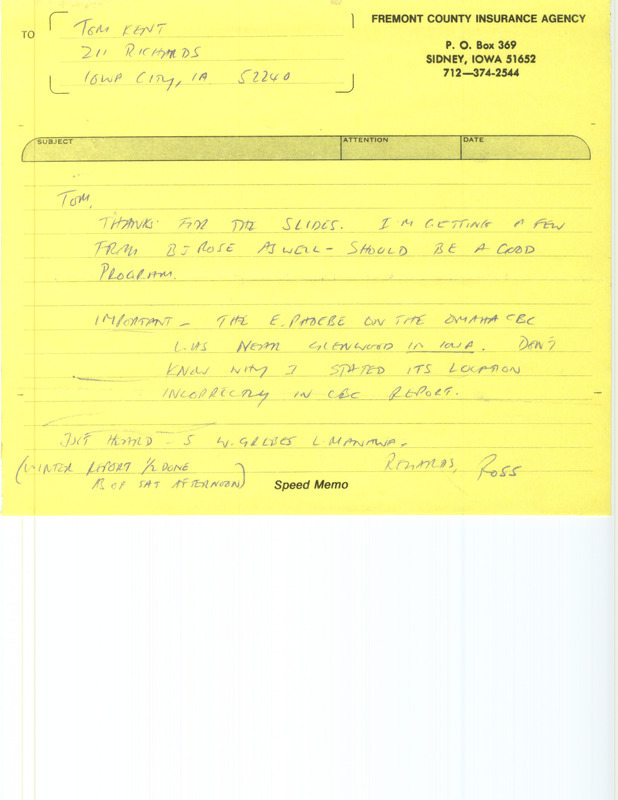 TO
TOM KENT
211 RICHARDS
IOWA CITY, IA 52240
FREMONT COUNTY INSURANCE AGENCY
P. O. Box 369
SIDNEY, IOWA 51652
712—374-2544
SUBJECT ATTENTION DATE
TOM,
THANKS FOR THE SLIDES. I'M GETTING A FEW
FROM BJ ROSE AS WELL - SHOULD BE A GOOD
PROGRAM.
IMPORTANT - THE E. PHOEBE ON THE OMAHA CBC
WAS NEAR GLENWOOD IN IOWA. DON'T
KNOW WHY I STATED ITS LOCATION
INCORRECTLY IN CBC REPORT.
JUST HEARD - 5 W. GREBES L. MANAWA -
(WINTER REPORT 1/2 DONE
AS OF SAT AFTERNOON)
REGARDS, ROSS
Speed Memo